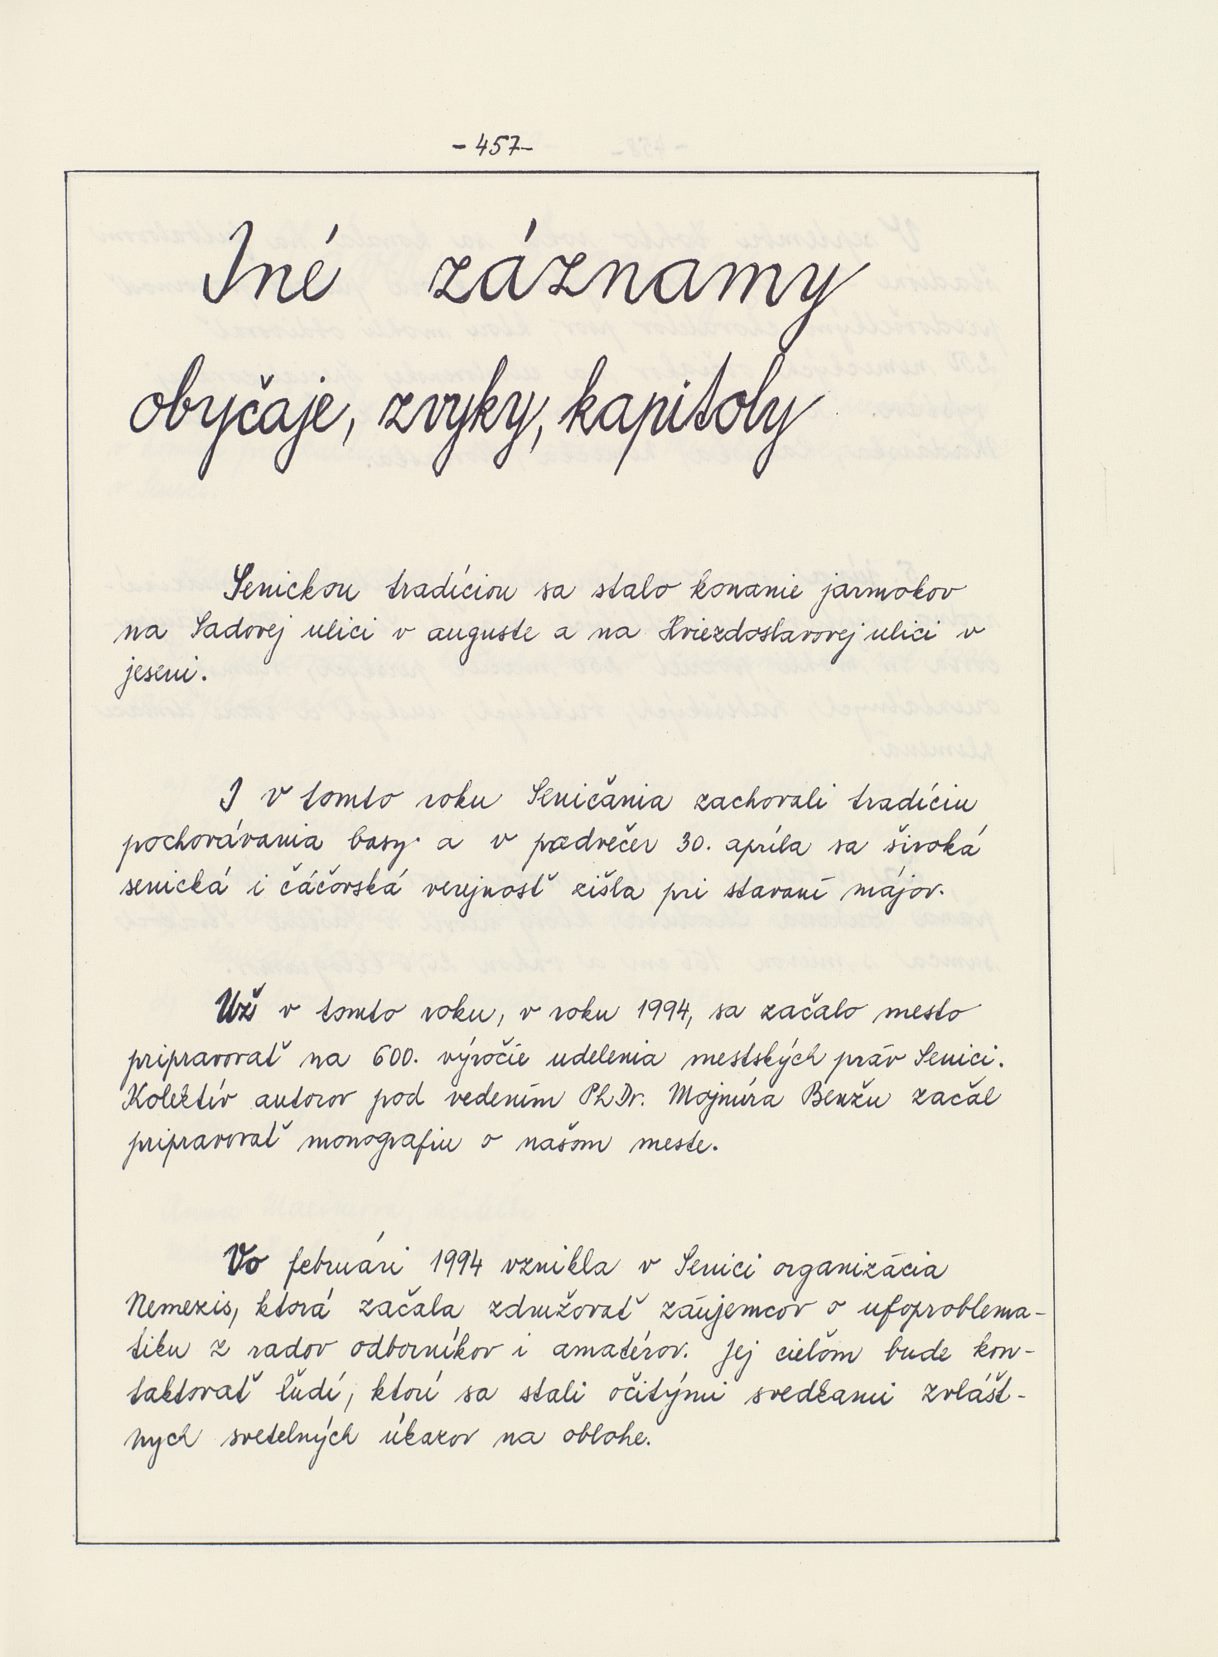 - 457 -
Iné záznamy
obyčaje, zvyky, kapitoly
Senickou tradíciou sa stalo konanie jarmokov
na Sadovej ulici v auguste a na Hviezdoslavovej ulici v
jeseni.
I v tomto roku Seničania zachovali tradíciu
pochovávania basy a v predvečer 30. apríla sa široká
senická i čáčovská verejnosť zišla pri stavaní májov.
Už v tomto roku, v roku 1994, sa začalo mesto
pripravovať na 600. výročie udelenia mestských práv Senici.
Kolektív autorov pod vedením PhDr. Mojmíra Benžu začal
pripravovať monografiu o našom meste.
Vo februári 1994 vznikla v Senici organizácia
Nemezis, ktorá začala združovať záujemcov o ufoproblema-
tiku z radov odborníkov i amatérov. Jej cieľom bude kon-
taktovať ľudí, ktorí sa stali očitými svedkami zvlášt-
nych svetelných úkazov na oblohe.